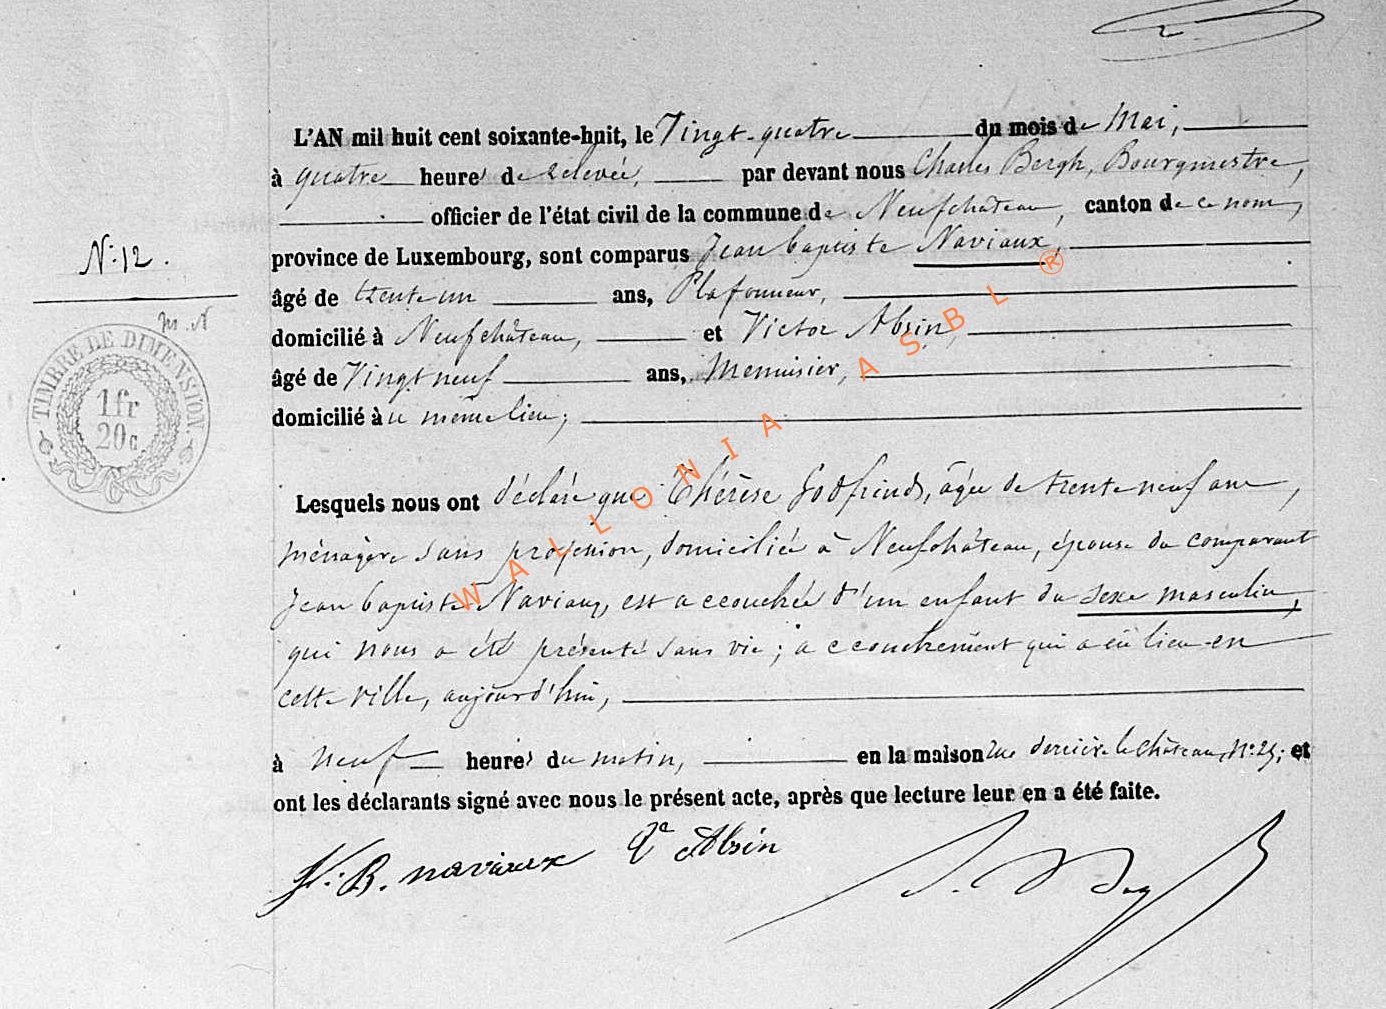 L'AN mil huit cent soixante-huit, le Vingt-quatre du mois de Mai,
à quatre heures de relevée, par devant nous Charles Bergh, Bourgmestre,
officier de l'état civil de la commune de Neufchâteau, canton de ce nom,
N.° 12.
province de Luxembourg, sont comparus Jean baptiste Naviaux,
âgé de trente un ans, Plafonneur,
m. N
domicilié à Neufchâteau, et Victor Absin,
TIMBRE DE DIMENSION.
âgé de Vingt neuf ans, Menuisier,
1 fr
20 c
domicilié à ce même lieu;
WALLONIA ASBL ®
Lesquels nous ont déclaré que Thérèse Godfrind, âgée de trente neuf ans,
ménagère sans profession, domiciliée à Neufchâteau, épouse du comparant
Jean baptiste Naviaux, est accouchée d'un enfant du sexe masculin,
qui nous a été présenté sans vie; accouchement qui a eû lieu en
cette ville, aujourd'hui,
à neuf heures du matin, en la maison rue derrière le château, N.° 25; et
ont les déclarants signé avec nous le présent acte, après que lecture leur en a été faite.
J. B. naviaux Vr Absin